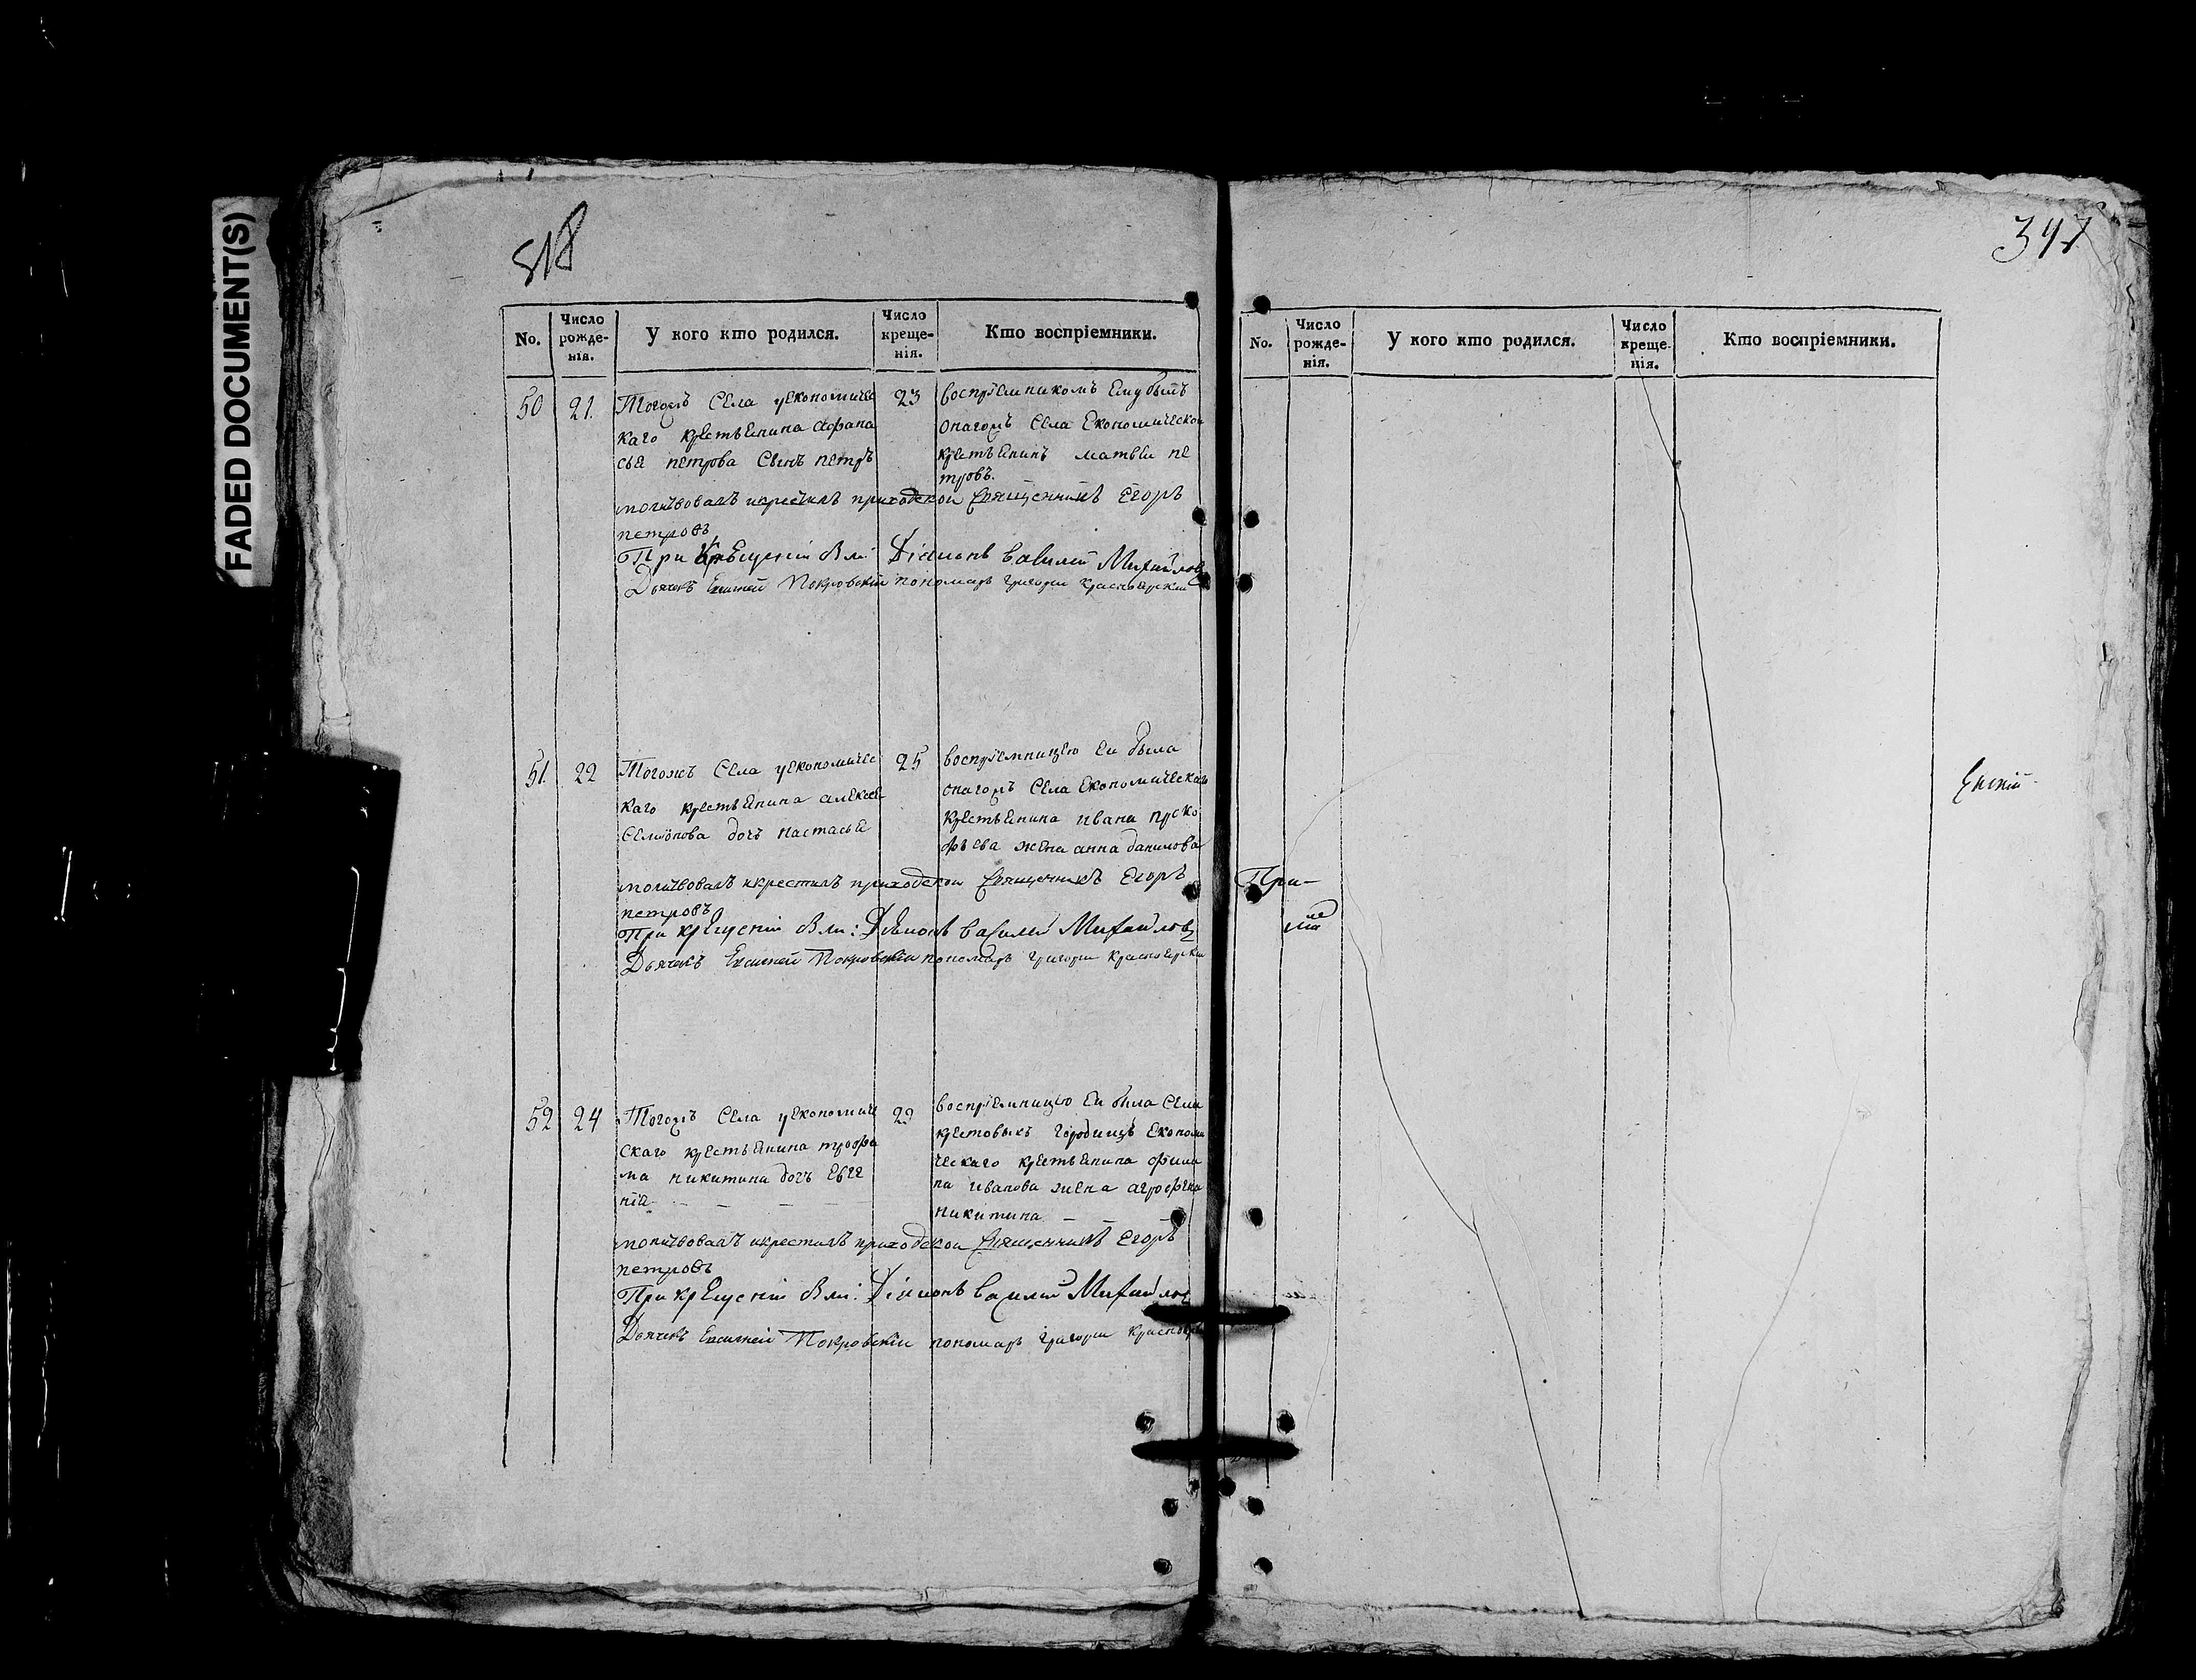 FADED DOCUMENT(S)
518
No.
Число рожде-нія.
У кого кто родился.
Число креще-нія.
Кто воспріемники.
50
21.
Тогожъ села уекономичес
каго крестьенина афана
сья петрова сынъ петръ
23
воспріемникомъ ему былъ
онагожъ села Економическои
крестьенинъ матвеи пе
тровъ.
молитвовалъ икрестилъ приходскои священникъ Егоръ
петровъ
При крещеніи были: Діаконъ василій Михайловъ
Дьячекъ Покровскіи пономарь григореи Красноярскіи
51
22
Тогожъ села уекономичес
каго крестьенина алексея
семіонова дочь настасья
25
воспріемницею еи была
онагожъ села Економическаго
крестьенина ивана проко
фьева жена анна данилова
молитвовалъ икрестилъ приходскои священникъ Егоръ
петровъ
При крещеніи были: Діаконъ василей Михайловъ
Дьячекъ Покровскіи пономарь григореи Красноярскіи
52
24
Тогожъ села уекономиче
скаго крестьенина трофи
ма никитина дочь Евге
нія
29
воспріемницею еи была села
крестовыхъ городищъ економи
ческаго крестьенина фили
па иванова жена агрофена
никитина
молитвовалъ икрестилъ приходскои священникъ Егоръ
петровъ
При крещеніи были: Діаконъ василей Михайловъ
Дьячекъ Покровскіи пономарь григореи Краснояр
347
No.
Число рожде-нія.
У кого кто родился.
Число креще-нія.
Кто воспріемники.
При-